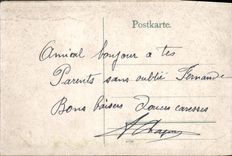 Postkarte.
Amical bonjour a tes
Parents sans oublié Fernande
Bons baisers douces caresses